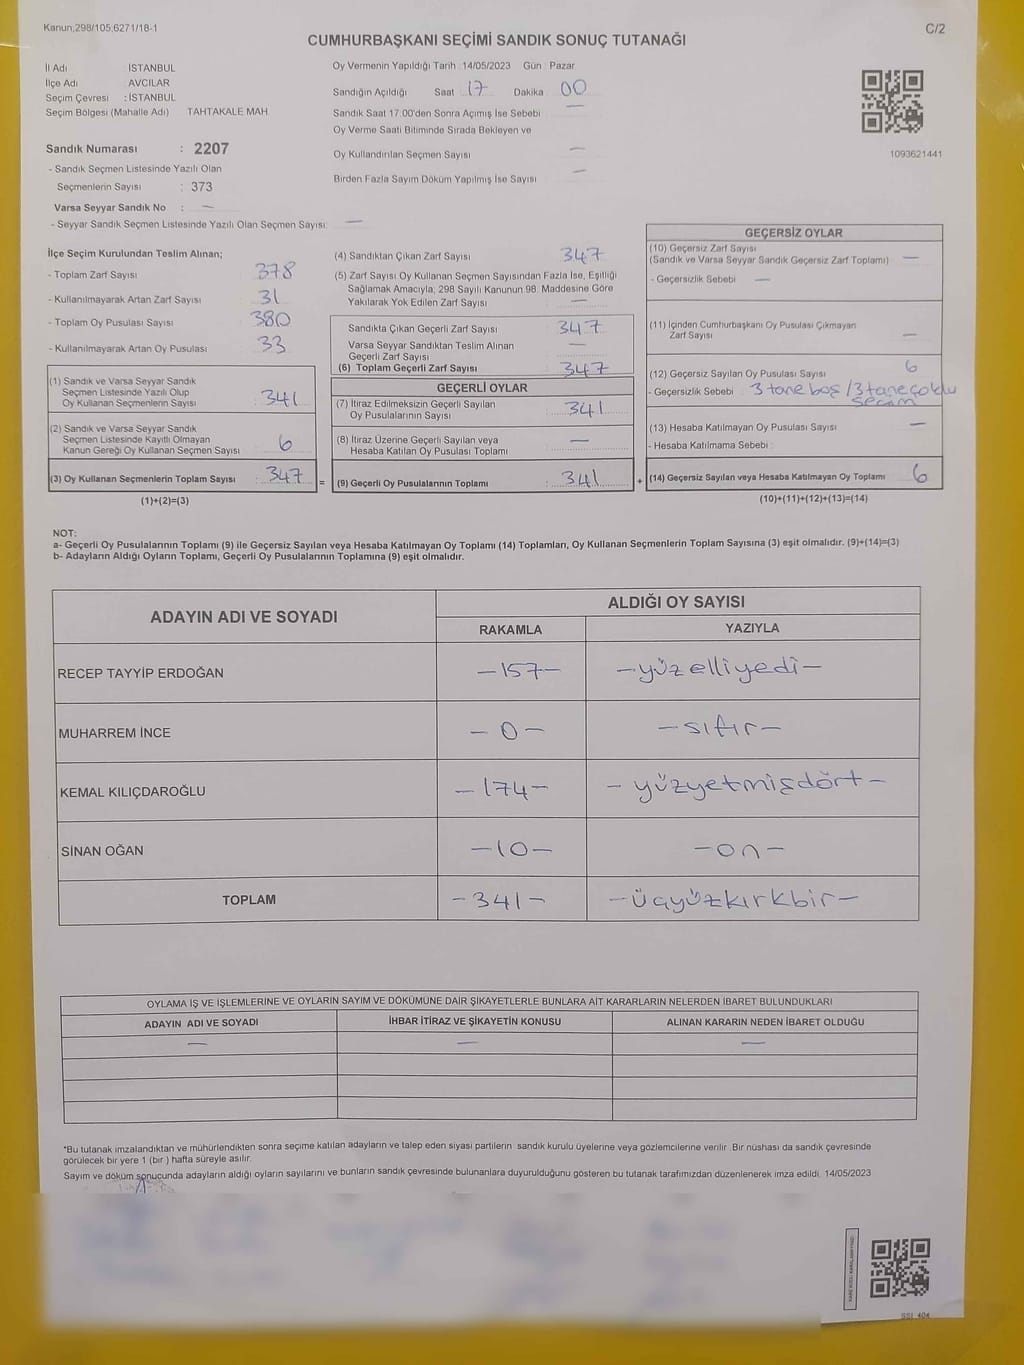 Kanun;298/105;6271/18-1
C/2
CUMHURBAŞKANI SEÇİMİ SANDIK SONUÇ TUTANAĞI
İl Adı : İSTANBUL
İlçe Adı : AVCILAR
Seçim Çevresi : İSTANBUL
Seçim Bölgesi (Mahalle Adı) TAHTAKALE MAH.
Oy Vermenin Yapıldığı Tarih : 14/05/2023 Gün : Pazar
Sandığın Açıldığı Saat 17 Dakika 00
Sandık Saat 17:00'den Sonra Açımış İse Sebebi —
Oy Verme Saati Bitiminde Sırada Bekleyen ve
Oy Kullandırılan Seçmen Sayısı —
Birden Fazla Sayım Döküm Yapılmış İse Sayısı —
1093621441
Sandık Numarası : 2207
- Sandık Seçmen Listesinde Yazılı Olan
Seçmenlerin Sayısı : 373
Varsa Seyyar Sandık No : —
- Seyyar Sandık Seçmen Listesinde Yazılı Olan Seçmen Sayısı: —
İlçe Seçim Kurulundan Teslim Alınan;
- Toplam Zarf Sayısı 378
- Kullanılmayarak Artan Zarf Sayısı 31
- Toplam Oy Pusulası Sayısı 380
- Kullanılmayarak Artan Oy Pusulası 33
(1) Sandık ve Varsa Seyyar Sandık
Seçmen Listesinde Yazılı Olup
Oy Kullanan Seçmenlerin Sayısı 341
(2) Sandık ve Varsa Seyyar Sandık
Seçmen Listesinde Kayıtlı Olmayan
Kanun Gereği Oy Kullanan Seçmen Sayısı 6
(3) Oy Kullanan Seçmenlerin Toplam Sayısı 347
(1)+(2)=(3)
=
(4) Sandıktan Çıkan Zarf Sayısı 347
(5) Zarf Sayısı Oy Kullanan Seçmen Sayısından Fazla İse, Eşitliği
Sağlamak Amacıyla; 298 Sayılı Kanunun 98. Maddesine Göre
Yakılarak Yok Edilen Zarf Sayısı —
Sandıkta Çıkan Geçerli Zarf Sayısı 347
Varsa Seyyar Sandıktan Teslim Alınan
Geçerli Zarf Sayısı —
(6) Toplam Geçerli Zarf Sayısı 347
GEÇERLİ OYLAR
(7) İtiraz Edilmeksizin Geçerli Sayılan
Oy Pusulalarının Sayısı 341
(8) İtiraz Üzerine Geçerli Sayılan veya
Hesaba Katılan Oy Pusulası Toplamı —
(9) Geçerli Oy Pusulalarının Toplamı : 341
+
GEÇERSİZ OYLAR
(10) Geçersiz Zarf Sayısı
(Sandık ve Varsa Seyyar Sandık Geçersiz Zarf Toplamı) —
- Geçersizlik Sebebi —
(11) İçinden Cumhurbaşkanı Oy Pusulası Çıkmayan
Zarf Sayısı —
(12) Geçersiz Sayılan Oy Pusulası Sayısı 6
- Geçersizlik Sebebi 3 tane boş / 3 tane çoklu
seçim
(13) Hesaba Katılmayan Oy Pusulası Sayısı —
- Hesaba Katılmama Sebebi :
(14) Geçersiz Sayılan veya Hesaba Katılmayan Oy Toplamı 6
(10)+(11)+(12)+(13)=(14)
NOT:
a- Geçerli Oy Pusulalarının Toplamı (9) ile Geçersiz Sayılan veya Hesaba Katılmayan Oy Toplamı (14) Toplamları, Oy Kullanan Seçmenlerin Toplam Sayısına (3) eşit olmalıdır. (9)+(14)=(3)
b- Adayların Aldığı Oyların Toplamı, Geçerli Oy Pusulalarının Toplamına (9) eşit olmalıdır.
ADAYIN ADI VE SOYADI
ALDIĞI OY SAYISI
RAKAMLA YAZIYLA
RECEP TAYYİP ERDOĞAN —157— —yüzelliyedi—
MUHARREM İNCE —0— —sıfır—
KEMAL KILIÇDAROĞLU —174— —yüzyetmişdört—
SİNAN OĞAN —10— —on—
TOPLAM —341— —üçyüzkırkbir—
OYLAMA İŞ VE İŞLEMLERİNE VE OYLARIN SAYIM VE DÖKÜMÜNE DAİR ŞİKAYETLERLE BUNLARA AİT KARARLARIN NELERDEN İBARET BULUNDUKLARI
ADAYIN ADI VE SOYADI İHBAR İTİRAZ VE ŞİKAYETİN KONUSU ALINAN KARARIN NEDEN İBARET OLDUĞU
— — —
*Bu tutanak imzalandıktan ve mühürlendikten sonra seçime katılan adayların ve talep eden siyasi partilerin sandık kurulu üyelerine veya gözlemcilerine verilir. Bir nüshası da sandık çevresinde
görülecek bir yere 1 (bir ) hafta süreyle asılır.
Sayım ve döküm sonucunda adayların aldığı oyların sayılarını ve bunların sandık çevresinde bulunanlara duyurulduğunu gösteren bu tutanak tarafımızdan düzenlenerek imza edildi. 14/05/2023
SSI_404